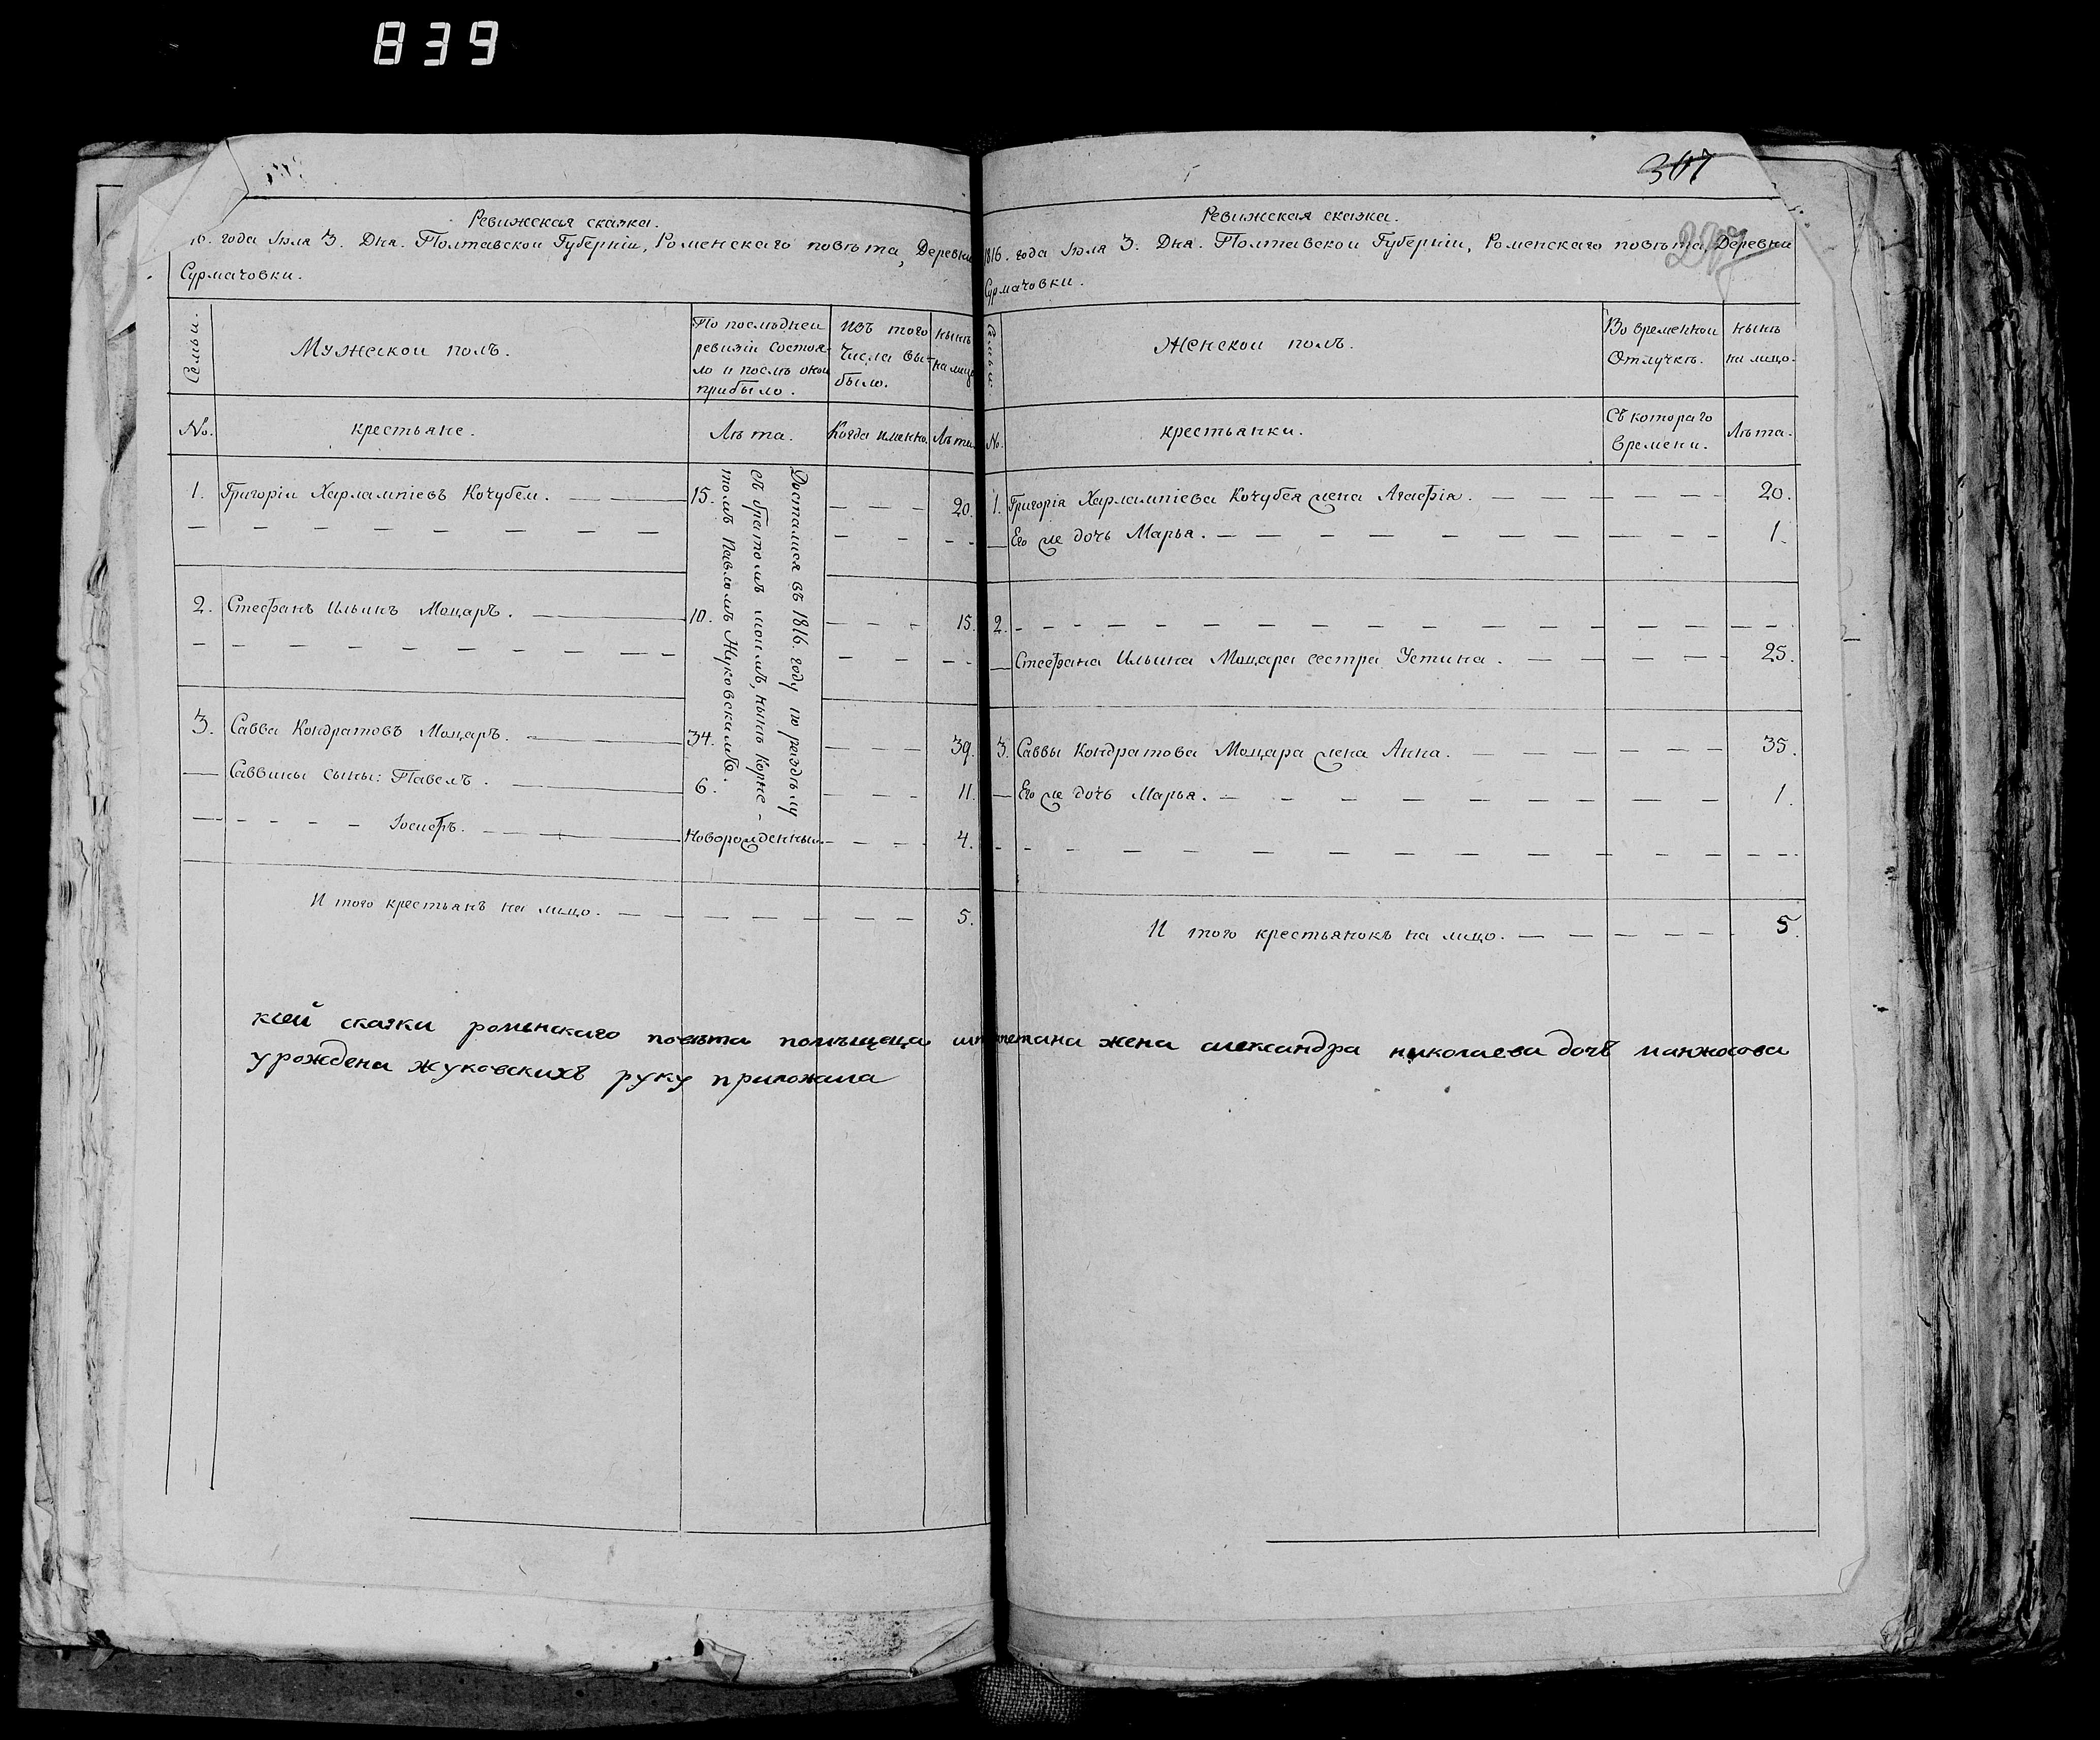 839
Ревижская сказка.
16. года Іюля 3. Дня. Полтавской Губерніи, Роменскаго повѣта, Деревни
Сурмачовки.
Семьи.
Мужескои полъ.
По послѣднеи
ревизіи состоя-
ло и послѣ онои
прибыло.
Изъ того
числа вы-
было.
нынѣ
на лицо
№.
крестьяне.
Лѣта.
Когда именно.
Лѣта.
1. Григоріи Харлампіевъ Кочубеи. — 15. — — — 20.
2. Стефанъ Ильинъ Моцаръ. — 10. — — — 15.
3. Савва Кондратовъ Моцаръ. — 34. — — — 39.
— Саввины сыны: Павелъ. — 6. — — — 11.
— — — — — Іосифъ. — Новорожденныи. — — — 4.
Достался въ 1816. году по раздѣлу
съ братомъ моимъ, нынѣ Корне-
томъ Павломъ Жуковскимъ.
И того крестьянъ на лицо. — — — — — — — 5.
307
Ревижская сказка.
1816. года Іюля 3. Дня. Полтавскои Губерніи, Роменскаго повѣта, Деревни
Сурмачовки.
Семьи.
Женскои полъ.
Во временнои
Отлучкѣ.
нынѣ
на лицо.
№.
крестьянки.
Съ котораго
времени.
Лѣта.
1. Григорія Харлампіева Кочубея жена Агафія. — — — — — — 20.
— Его же дочь Марья. — — — — — — — — — 1.
2. — — — — — — — — — — — —
— Стефана Ильина Моцара сестра Устина. — — — — — 25.
3. Саввы Кондратова Моцара жена Анна. — — — — — — 35.
— Его же дочь Марья. — — — — — — — — — 1.
И того крестьянокъ на лицо. — — — — — — 5.
ксей сказки роменскаго повѣта помѣщеца жена александра николаева дочъ манжосова
урождена жуковскихъ руку приложила